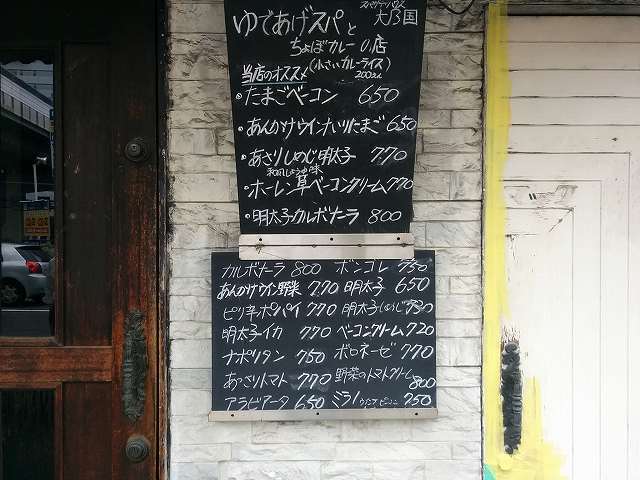 スパゲッティハウス
大乃国
ゆであげスパと
ちょぼカレーの店
(小さいカレーライス)
当店のオススメ 200えん
・たまごベーコン 650
・あんかけウインナ入りたまご 650
・あさりしめじ明太子 770
和風しょうゆ味
・ホーレン草ベーコンクリーム 770
・明太子カルボナーラ 800
カルボナーラ 800 ボンゴレ 750
あんかけウイン野菜 770 明太子 650
ピリ辛ポパイ 770 明太子しめじ
明太子イカ 770 ベーコンクリーム 720
ナポリタン 750 ボロネーゼ 770
あっさりトマト 770 野菜のトマトクリーム 800
アラビアータ 650 ミラノ 750